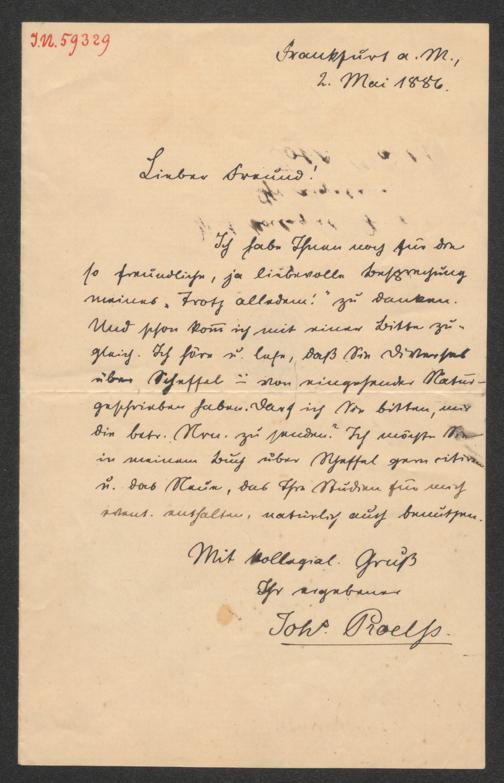 I.N. 59329
Frankfurt a. M.,
2. Mai 1886.
Lieber Freund!
Ich habe Ihnen noch für die
so freundliche, ja liebevolle Besprechung
meines „Trotz alledem!" zu danken.
Und schon kom̄ ich mit einer Bitte zu-
gleich. Ich höre u. lese, daß Sie Diverses
über Scheffel u. von eingehender Natur
geschrieben haben. Darf ich Sie bitten, mir
die betr. Nrn. zu senden? Ich möchte Sie
in meinem Buch über Scheffel gern citiren
u. das Neue, das Ihre Studien für mich
event. enthalten, natürlich auch benutzen.
Mit kollegial. Gruß
Ihr ergebener
Johs. Proelß.